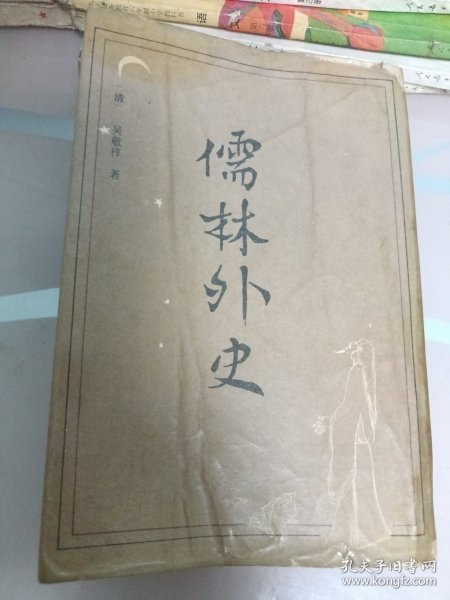 儒林外史
[清] 吴敬梓 著
语
孔夫子旧书网
www.kongfz.com